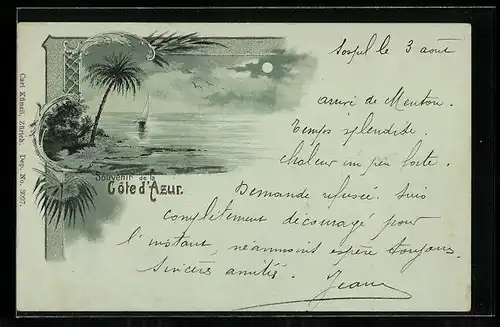 Sospel le 3 août
arrivé de Menton.
Temps splendide.
chaleur un peu forte.
Demande refusée. Suis
complètement découragé pour
l'instant, néanmoins espère toujours.
Sincères amitiés.
Jean
Souvenir de la
Côte d'Azur.
Carl Künzli, Zürich. Dep. No. 3097.